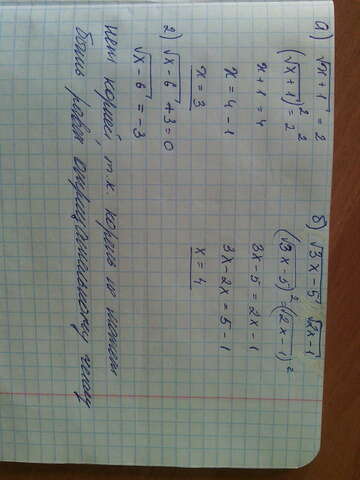 а) √x+1 = 2
(√x+1)² = 2²
x+1 = 4
x = 4 - 1
x = 3
2) √x-6 + 3 = 0
√x-6 = -3
нет корней, т.к. корень не может
быть равен отрицательному числу
б) √3x-5 √2x-1
(√3x-5)² = (√2x-1)²
3x-5 = 2x-1
3x-2x = 5-1
x = 4